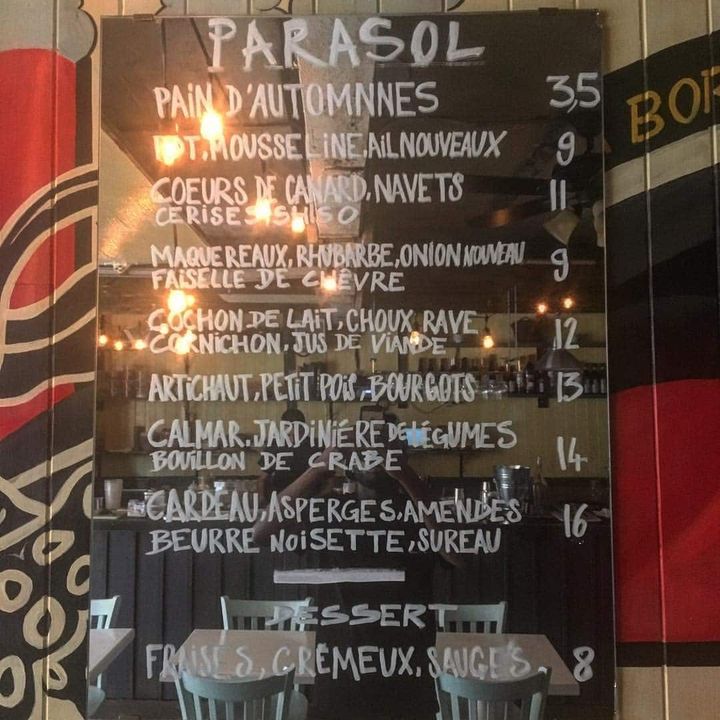 PARASOL
PAIN D'AUTOMNNES 3,5
MOUSSELINE, AIL NOUVEAUX 9
COEURS DE CANARD, NAVETS 11
CERISES SHISO
MAQUEREAUX, RHUBARBE, ONION NOUVEAU 9
FAISELLE DE CHÊVRE
COCHON DE LAIT, CHOUX RAVE 12
CORNICHON, JUS DE VIANDE
ARTICHAUT, PETIT POIS, BOURGOTS 13
CALMAR, JARDINIÉRE DE LÉGUMES 14
BOUILLON DE CRABE
CARDEAU, ASPERGES, AMENDES 16
BEURRE NOISETTE, SUREAU
DESSERT
FRAISES, CRÉMEUX, SAUGES 8
BOR